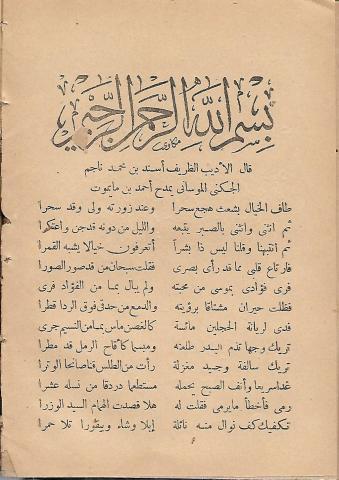 بسم الله الرحمن الرحيم
قال الأديب الظريف أسند بن محمد ناجم
الجكني الموساني يمدح أحمد بن مايموت
طاف الخيال بشعث هجع سحرا وعند زورته ولى وقد سحرا
ثم انثنى وانثنى بالصبر يتبعه والليل من دونه قد جن واعتكرا
ثم انتبهنا وقلنا ليس ذا بشراً أتعرفون خيالا يشبه القمرا
فارتاع قلبي مما قد رأى بصرى فقلت سبحان من قد صور الصورا
فرى فؤادى بموسى من محبته ولم يبال بما من الفؤاد فرى
فظللت حيران مشتاقا برؤيته والدمع من حدقى فوق الردا قطرا
فدى لريانة الحجلين مائسة كالغصن ماس بما من النسيم جرى
تريك وجها تذم البدر طلعته ومبسما كأقاح الرمل قد مطرا
تريك سالفة وجيد مغزلة رأت من الطلس قناصا نحا الوترا
غدا سريعا وأنف الصبح يحمله مستطعما دردقا من نسله عشرا
رمى فأخطأ مايرمى فقلت له هلا قصدت الهمام السيد الوزرا
تكفيك كف نوال منه نائلة إبلا وشاء وبيقورا تلا حمرا